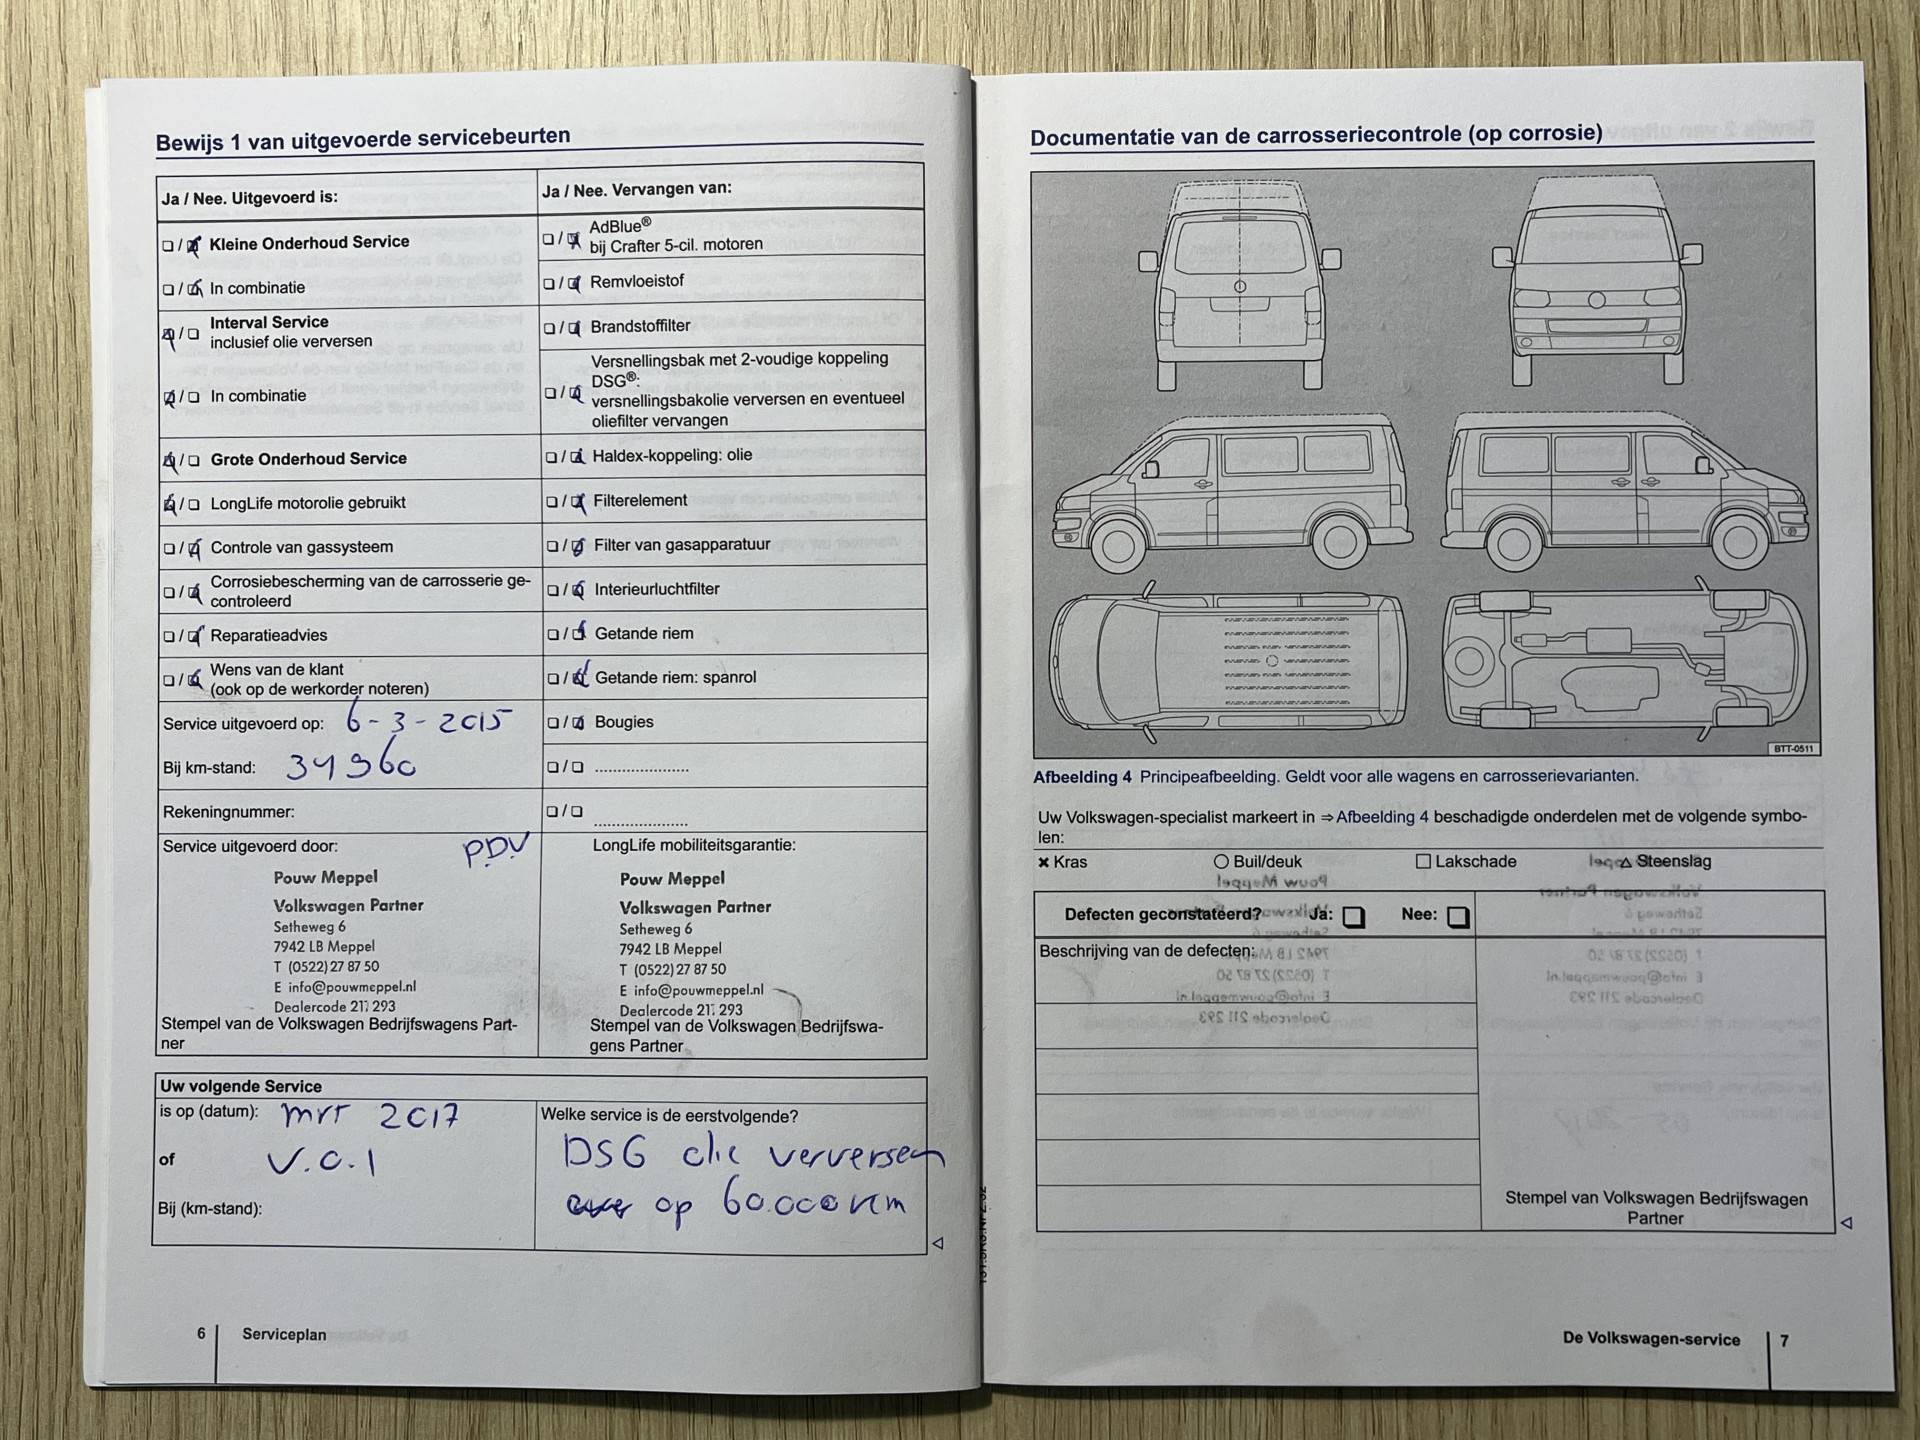 Bewijs 1 van uitgevoerde servicebeurten
Ja / Nee. Uitgevoerd is:
☐ / ☒ Kleine Onderhoud Service
☐ / ☒ In combinatie
☒ / ☐ Interval Service
inclusief olie verversen
☒ / ☐ In combinatie
☒ / ☐ Grote Onderhoud Service
☒ / ☐ LongLife motorolie gebruikt
☐ / ☒ Controle van gassysteem
☐ / ☒ Corrosiebescherming van de carrosserie ge-
controleerd
☐ / ☒ Reparatieadvies
☐ / ☒ Wens van de klant
(ook op de werkorder noteren)
Service uitgevoerd op: 6-3-2015
Bij km-stand: 34960
Rekeningnummer:
Ja / Nee. Vervangen van:
☐ / ☒ AdBlue®
bij Crafter 5-cil. motoren
☐ / ☒ Remvloeistof
☐ / ☒ Brandstoffilter
☐ / ☒ Versnellingsbak met 2-voudige koppeling
DSG®:
versnellingsbakolie verversen en eventueel
oliefilter vervangen
☐ / ☒ Haldex-koppeling: olie
☐ / ☒ Filterelement
☐ / ☒ Filter van gasapparatuur
☐ / ☒ Interieurluchtfilter
☐ / ☒ Getande riem
☐ / ☒ Getande riem: spanrol
☐ / ☒ Bougies
☐ / ☐ ....................
☐ / ☐ ....................
Service uitgevoerd door: P.D.V
Pouw Meppel
Volkswagen Partner
Setheweg 6
7942 LB Meppel
T (0522) 27 87 50
E info@pouwmeppel.nl
Dealercode 211 293
Stempel van de Volkswagen Bedrijfswagens Part-
ner
LongLife mobiliteitsgarantie:
Pouw Meppel
Volkswagen Partner
Setheweg 6
7942 LB Meppel
T (0522) 27 87 50
E info@pouwmeppel.nl
Dealercode 211 293
Stempel van de Volkswagen Bedrijfswa-
gens Partner
Uw volgende Service
is op (datum): mrt 2017
of V.A.1
Bij (km-stand):
Welke service is de eerstvolgende?
DSG olie verversen
op 60.000 km
6 Serviceplan
Documentatie van de carrosseriecontrole (op corrosie)
BTT-0511
Afbeelding 4 Principeafbeelding. Geldt voor alle wagens en carrosserievarianten.
Uw Volkswagen-specialist markeert in ⇒ Afbeelding 4 beschadigde onderdelen met de volgende symbo-
len:
✖ Kras ○ Buil/deuk ☐ Lakschade △ Steenslag
Defecten geconstateerd? Ja: ☐ Nee: ☐
Beschrijving van de defecten:
Stempel van Volkswagen Bedrijfswagen
Partner
De Volkswagen-service 7